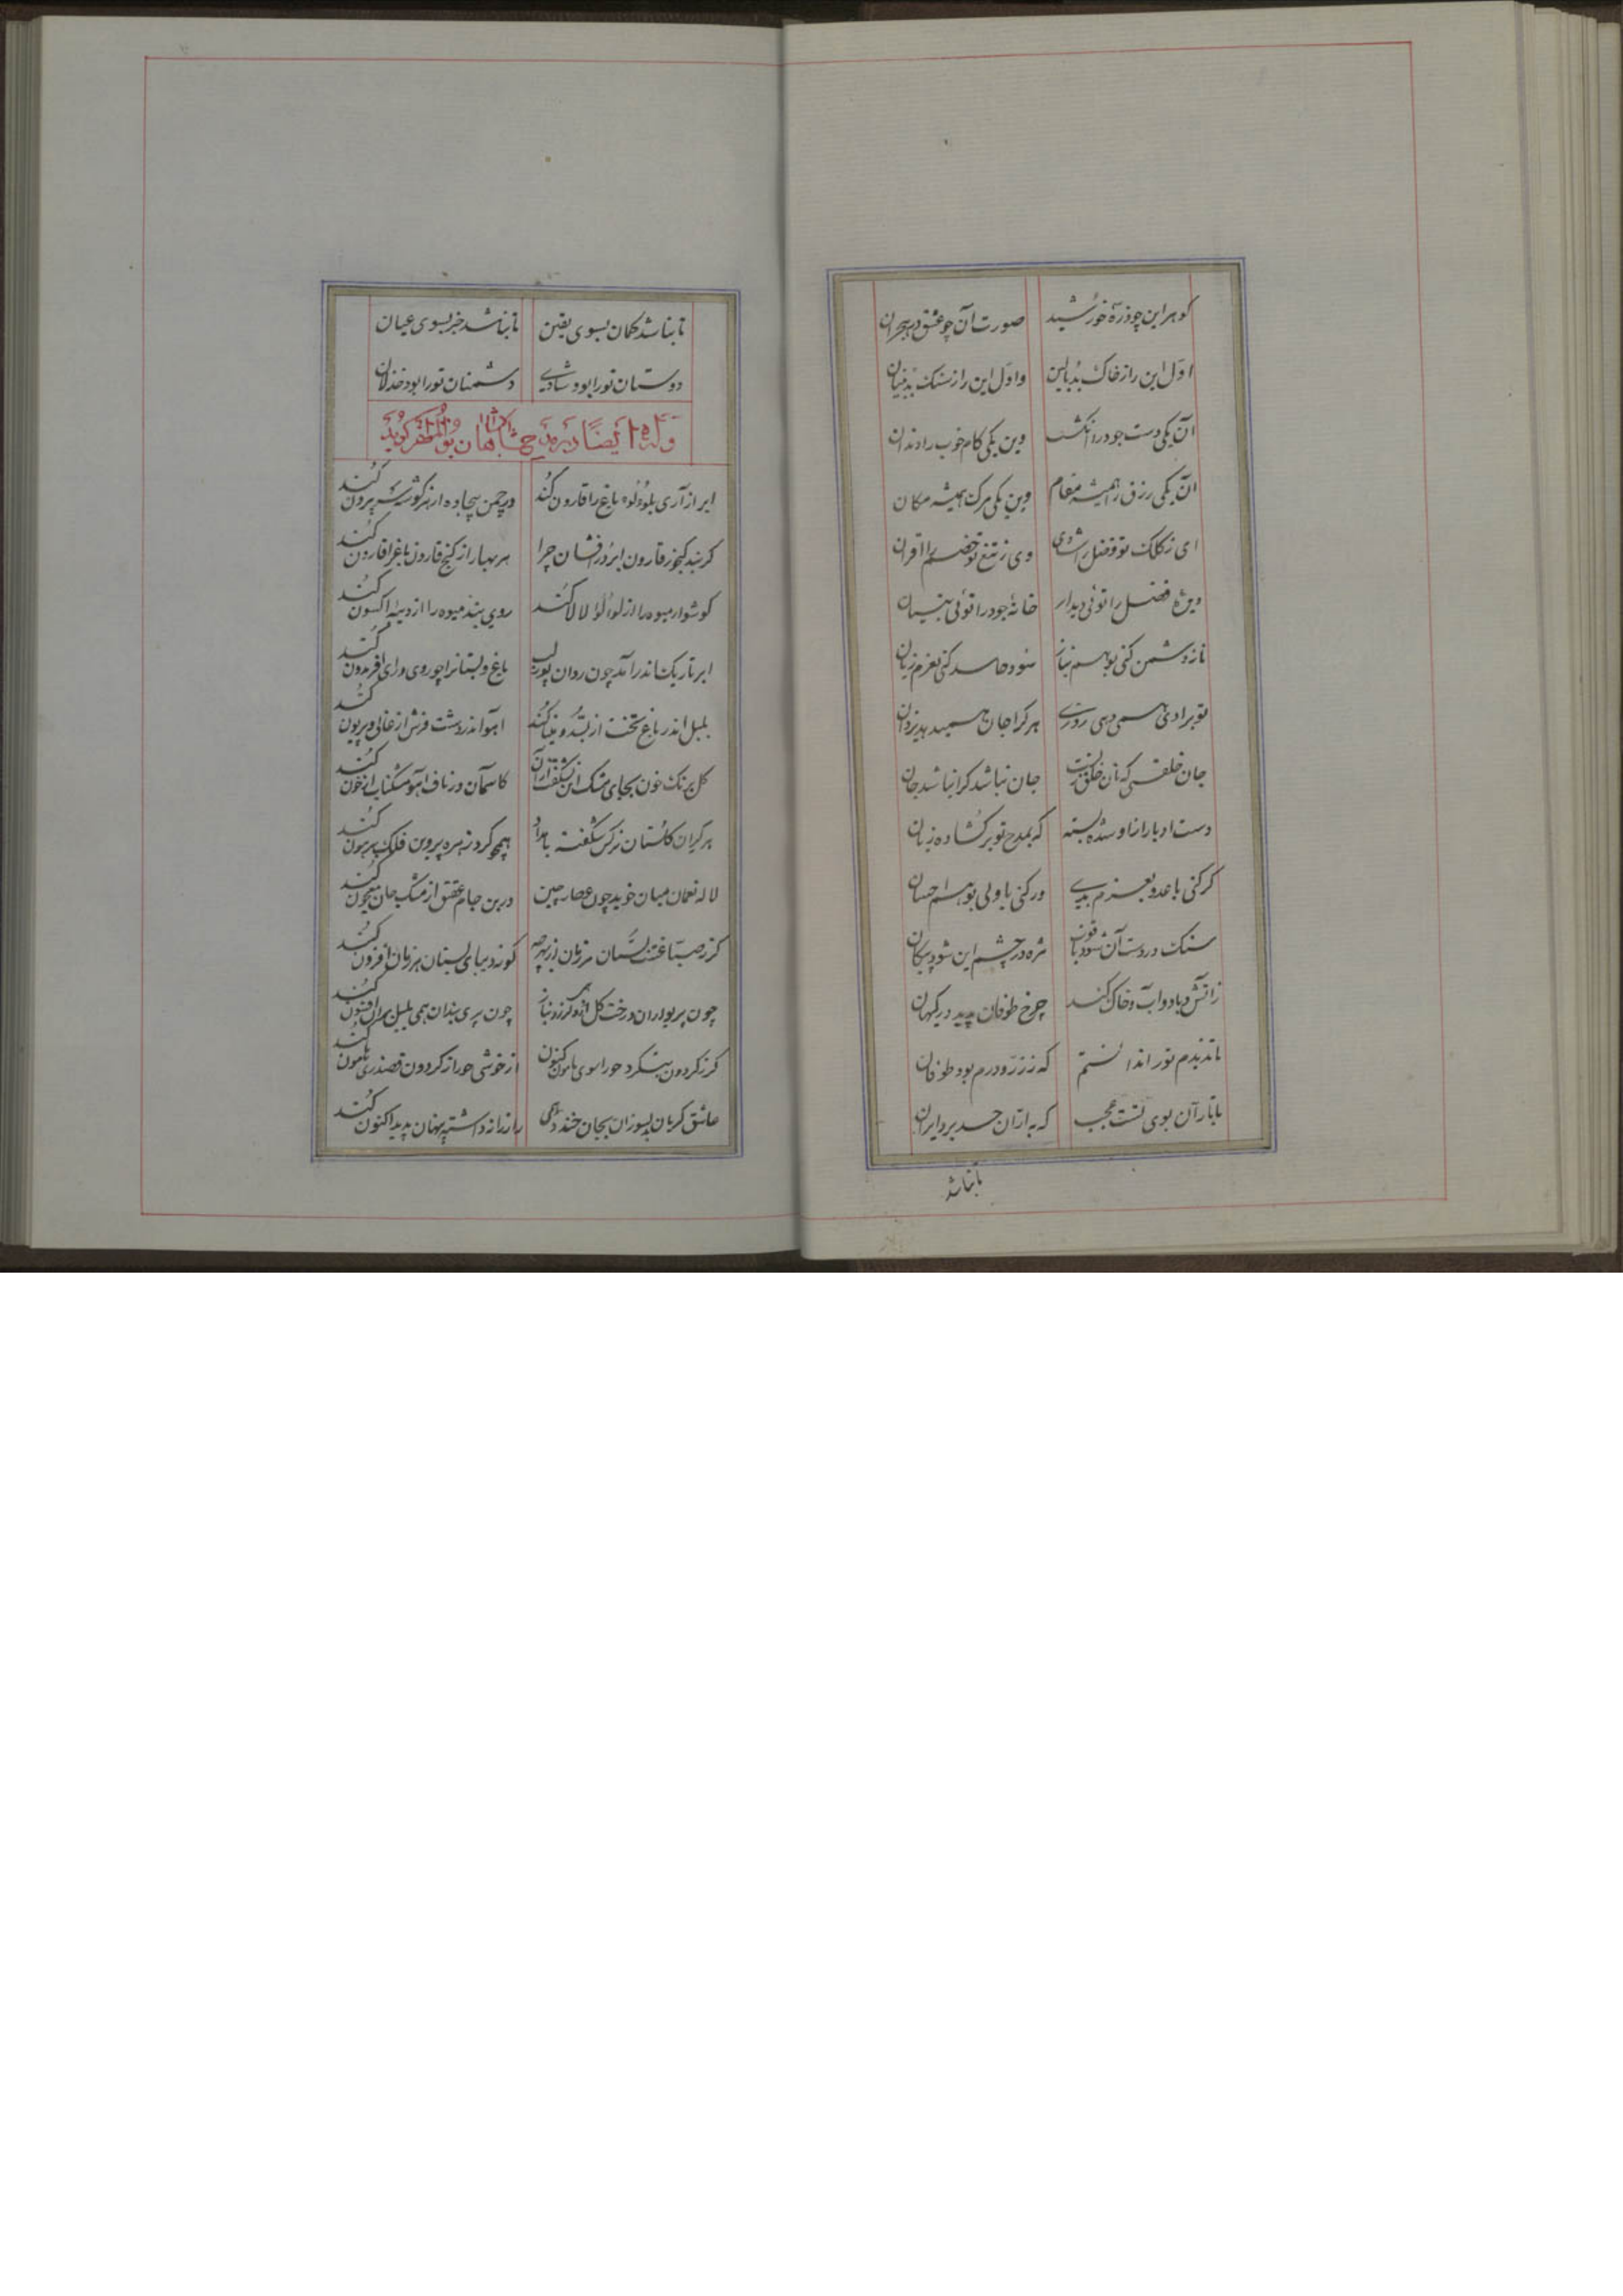 گوهر این چو ذرّهٔ خورشید صورت آن چو عشق در هجران
اوّل این را ز خاک بد بالین و اوّل این را ز سنک بد بنیان
آن یکی دست جود را انکشت وین یکی کام خوب را دندان
آن یکی رزق را همیشه مقام وین یکی مرک را همیشه مکان
ای ز کلک تو فضل را شادی وی ز تیغ تو خصم را اقران
دیدهٔ فضل را توئی دیدار خانهٔ جود را توئی بنیان
ناز دشمن کنی بوهم نیاز سود حاسد کنی بعزم زیان
تو برادی همی دهی روزی هر کرا جان همی دهد یزدان
جان خلقی که نان خلق ز تست جان نباشد کرا نباشد نان
دست ادبار از او شده بسته که بمدح تو برکشاده زبان
کر کنی با عدو بعزم بدی ور کنی با ولی بوهم احسان
سنک در دست آن شود یاقوت مژه در چشم این شود پیکان
ز آتش و باد و آب و خاک کند چرخ طوفان پدید در کیهان
تا ندیدم تو را ندانستم که ز زرّ و درم بود طوفان
با تبار آن بوی نشست عجب که به ارّان حسد برد ایران
تا نباشد
تا نباشد کمان بسوی یقین تا نباشد خبر بسوی عیان
دوستان تو را بود شادی دشمنان تو را بود خذلان
وله ایضا در مدح شاه جهان بوالمظفر گوید
ابر آزاری بلؤلؤ باغ را قارون کند در چمن بیجاده از هر گوشه بیرون کند
کر نبد کنجور قارون ابر درافشان چرا هر بهار از کنج قارون باغ را قارون کند
کوشوار میوه را از لؤلؤ لالا کند روی بند میوه را از دیبهٔ اکسون کند
ابر تاریک اندر آمد چون روان پورسب باغ و بستانرا چو روی و رای افریدون کند
بلبل اندر باغ تخت از بسّد و مینا کند آهو اندر دشت فرش از غالی و پریون کند
کل برنک خون بجای مشک ازان شد آشکار کاسمان در ناف آهو مشکناب از خون کند
بر کران کلستان نرکس شکفته بامداد همچو کرد زهره پروین فلک پرهون کند
لاله نعمان میان خوید چون عطار چین در بن جام عقیق از مشک جان معجون کند
کر نه صبّاغ کشت نیسان هر زمان از بهر چه کونه دیبای بستان هر زمان افزون کند
چون پریداران درخت کل همی لرزد بباز چون پری بندان همی بلبل بر او افسون کند
کر ز کردون بنکرد حورا سوی هامون کنون از خوشی حور از کردون قصد زی هامون کند
عاشق کریان بسوزان بجان خندد همی راز را داشته پنهان پدید اکنون کند